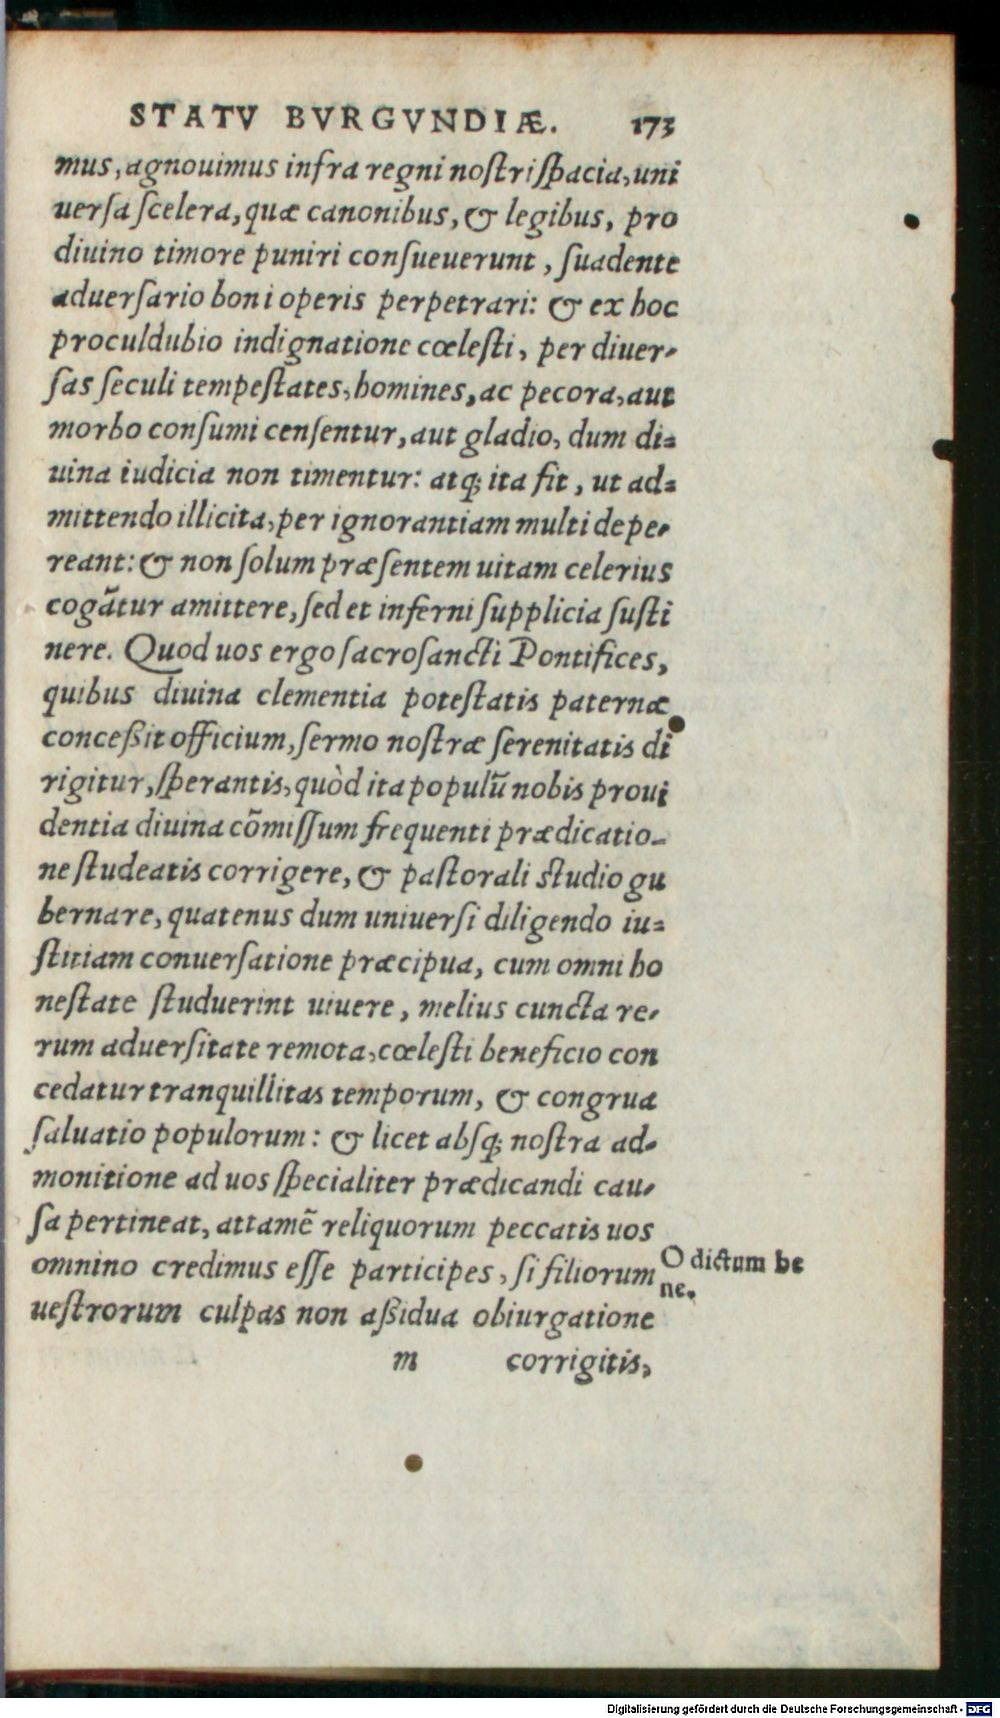 STATV BVRGVNDIÆ. 173
mus, agnouimus infra regni nostri spacia, uni
uersa scelera, quæ canonibus, & legibus, pro
diuino timore puniri consueuerunt, suadente
aduersario boni operis perpetrari: & ex hoc
proculdubio indignatione cœlesti, per diuer-
sas seculi tempestates, homines, ac pecora, aut
morbo consumi censentur, aut gladio, dum di-
uina iudicia non timentur: atq; ita fit, ut ad-
mittendo illicita, per ignorantiam multi depe-
reant: & non solum præsentem uitam celerius
cogãtur amittere, sed et inferni supplicia susti
nere. Quod uos ergo sacrosancti Pontifices,
quibus diuina clementia potestatis paternæ
conceßit officium, sermo nostræ serenitatis di
rigitur, sperantis, quòd ita populũ nobis proui
dentia diuina cõmissum frequenti prædicatio-
ne studeatis corrigere, & pastorali studio gu
bernare, quatenus dum uniuersi diligendo iu-
stitiam conuersatione præcipua, cum omni ho
nestate studuerint uiuere, melius cuncta re-
rum aduersitate remota, cœlesti beneficio con
cedatur tranquillitas temporum, & congrua
saluatio populorum: & licet absq; nostra ad-
monitione ad uos specialiter prædicandi cau-
sa pertineat, attamẽ reliquorum peccatis uos
omnino credimus esse participes, si filiorum
uestrorum culpas non aßidua obiurgatione
O dictum be
ne.
m corrigitis,
Digitalisierung gefördert durch die Deutsche Forschungsgemeinschaft - DFG